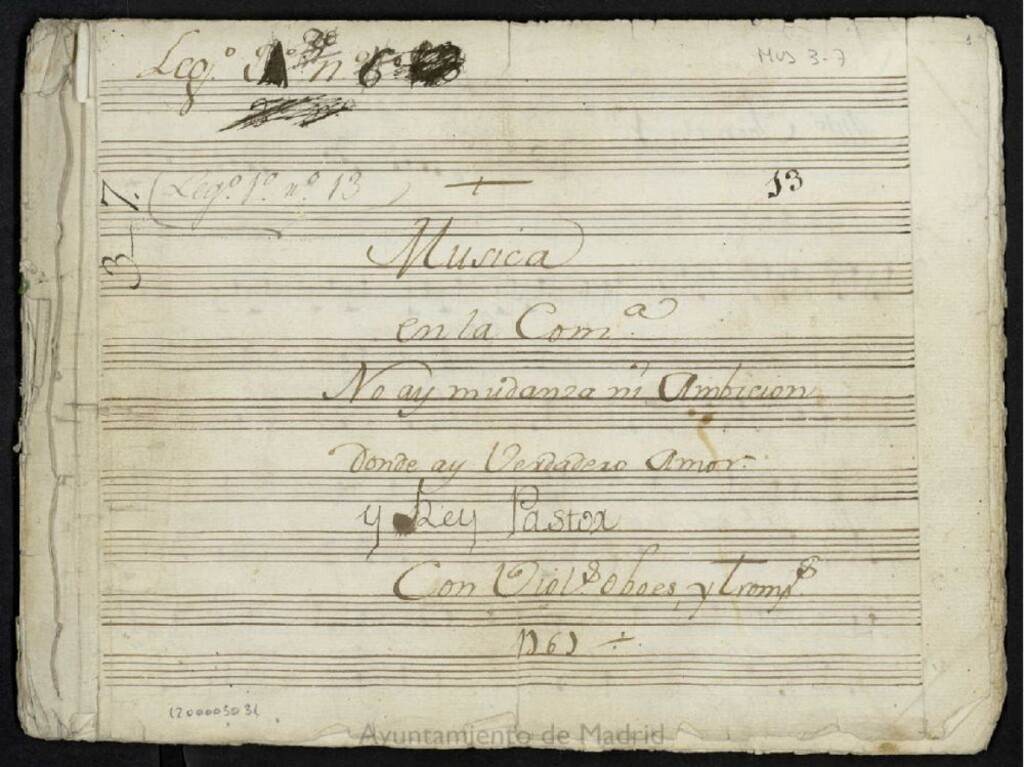 Leg.º nº 6º
Mus 3-7
(Leg.º 1.º n.º 13)
13
3-7.
Musica
en la Com.ª
No ay mudanza ni Ambicion
donde ay Verdadero Amor.
y Rey Pastor
Con Viol.s oboes, y tromp.s
176
1200003031
Ayuntamiento de Madrid